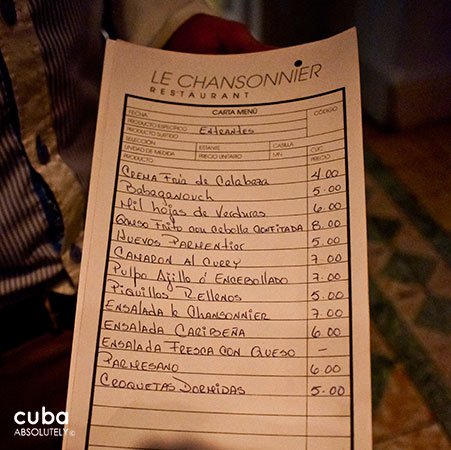 LE CHANSONNIER
RESTAURANT
FECHA: CARTA MENÚ CÓDIGO
PRODUCTO ESPECÍFICO
PRODUCTO SURTIDO ENTRANTES
SELECCIÓN: ESTANTE CASILLA CUC
UNIDAD DE MEDIDA PRECIO UNITARIO MN PRECIO
PRODUCTO
CREMA Fría de Calabaza 4.00
Babaganouch 5.00
Mil hojas de Verduras 6.00
Queso Frito con cebolla confitada 8.00
Huevos Parmentier 5.00
CAMARON AL CURRY 7.00
Pulpo Ajillo ó Encebollado 7.00
Piquillos Rellenos 5.00
Ensalada le Chansonnier 7.00
Ensalada Caribeña 6.00
Ensalada Fresca con Queso –
Parmesano 6.00
Croquetas Dormidas 5.00
cuba
ABSOLUTELY©